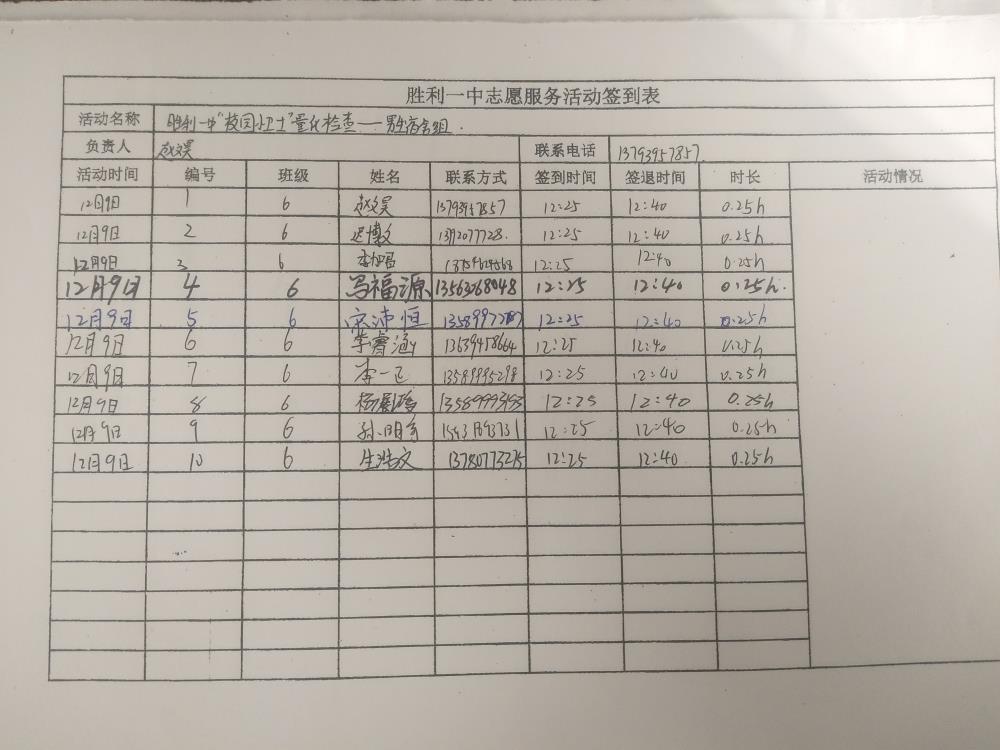 胜利一中志愿服务活动签到表
活动名称 胜利一中"校园卫士"量化检查——男生宿舍组.
负责人 赵文昊 联系电话 13793957857
活动时间 编号 班级 姓名 联系方式 签到时间 签退时间 时长 活动情况
12月9日 1 6 赵文昊 13793957857 12:25 12:40 0.25h
12月9日 2 6 迟博文 12:25 12:40 0.25h
12月9日 3 6 12:25 12:40 0.25h
12月9日 4 6 马福源 13563268048 12:25 12:40 0.25h.
12月9日 5 6 宋沛恒 12:25 12:40 0.25h
12月9日 6 6 李睿涵 13639458664 12:25 12:40 0.25h
12月9日 7 6 李一正 13589995298 12:25 12:40 0.25h
12月9日 8 6 12:25 12:40 0.25h
12月9日 9 6 12:25 12:40 0.25h
12月9日 10 6 生浩文 13780773275 12:25 12:40 0.25h